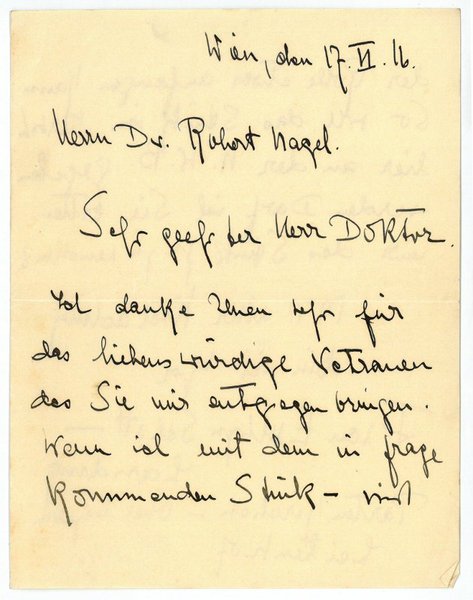 Wien, den 17. VI. 16.
Herrn Dr. Robert Nagel.
Sehr geehrter Herr Doktor.
Ich danke Ihnen sehr für
das liebenswürdige Vertrauen
das Sie mir entgegen bringen.
Wenn ich mit dem in frage
kommenden Stück –